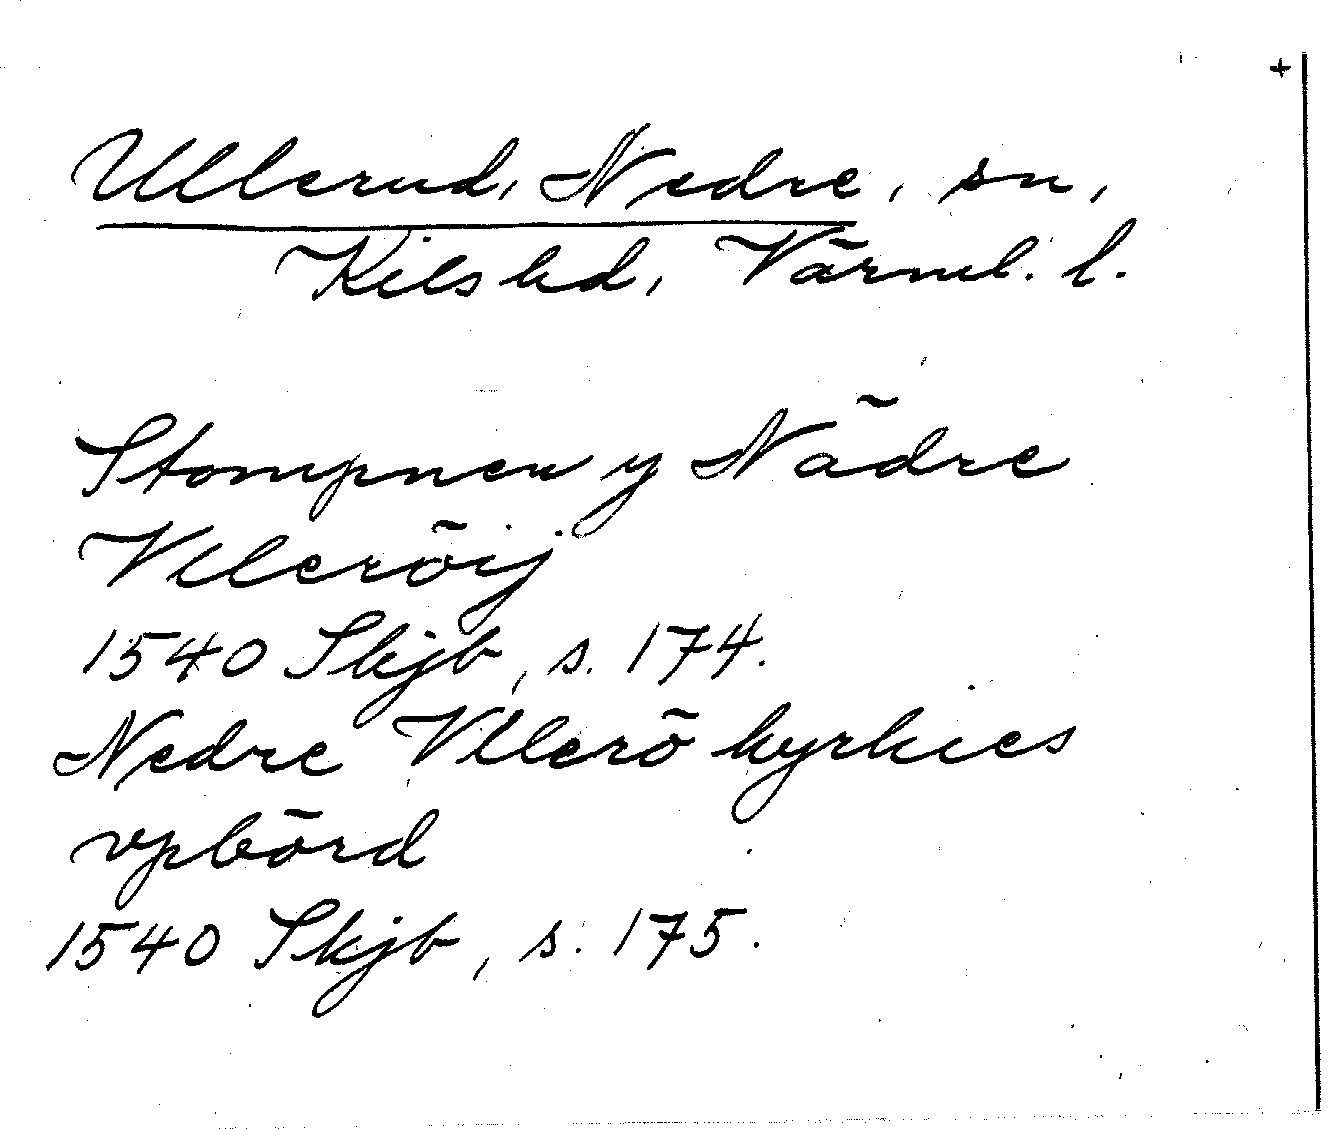 +
Ullerud, Nedre, sn,
Kils hd, Värml. l.
Stompnen y Nädre
Vlleröij
1540 Skjb, s. 174.
Nedre Vllerö kyrkies
vpbörd
1540 Skjb, s. 175.